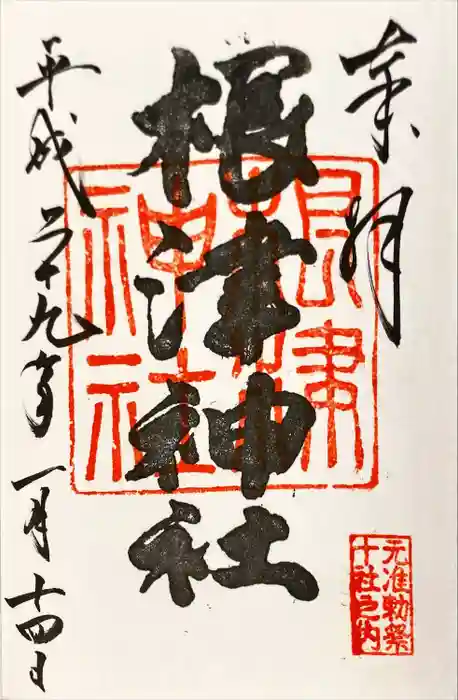 奉拝
根津神社
平成二十九年一月十四日
根津神社
元准勅祭
十社之内